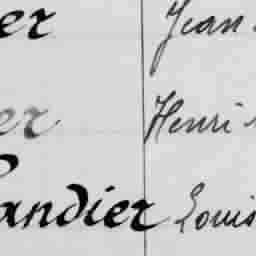 er Jean
er Henri
andier Louis